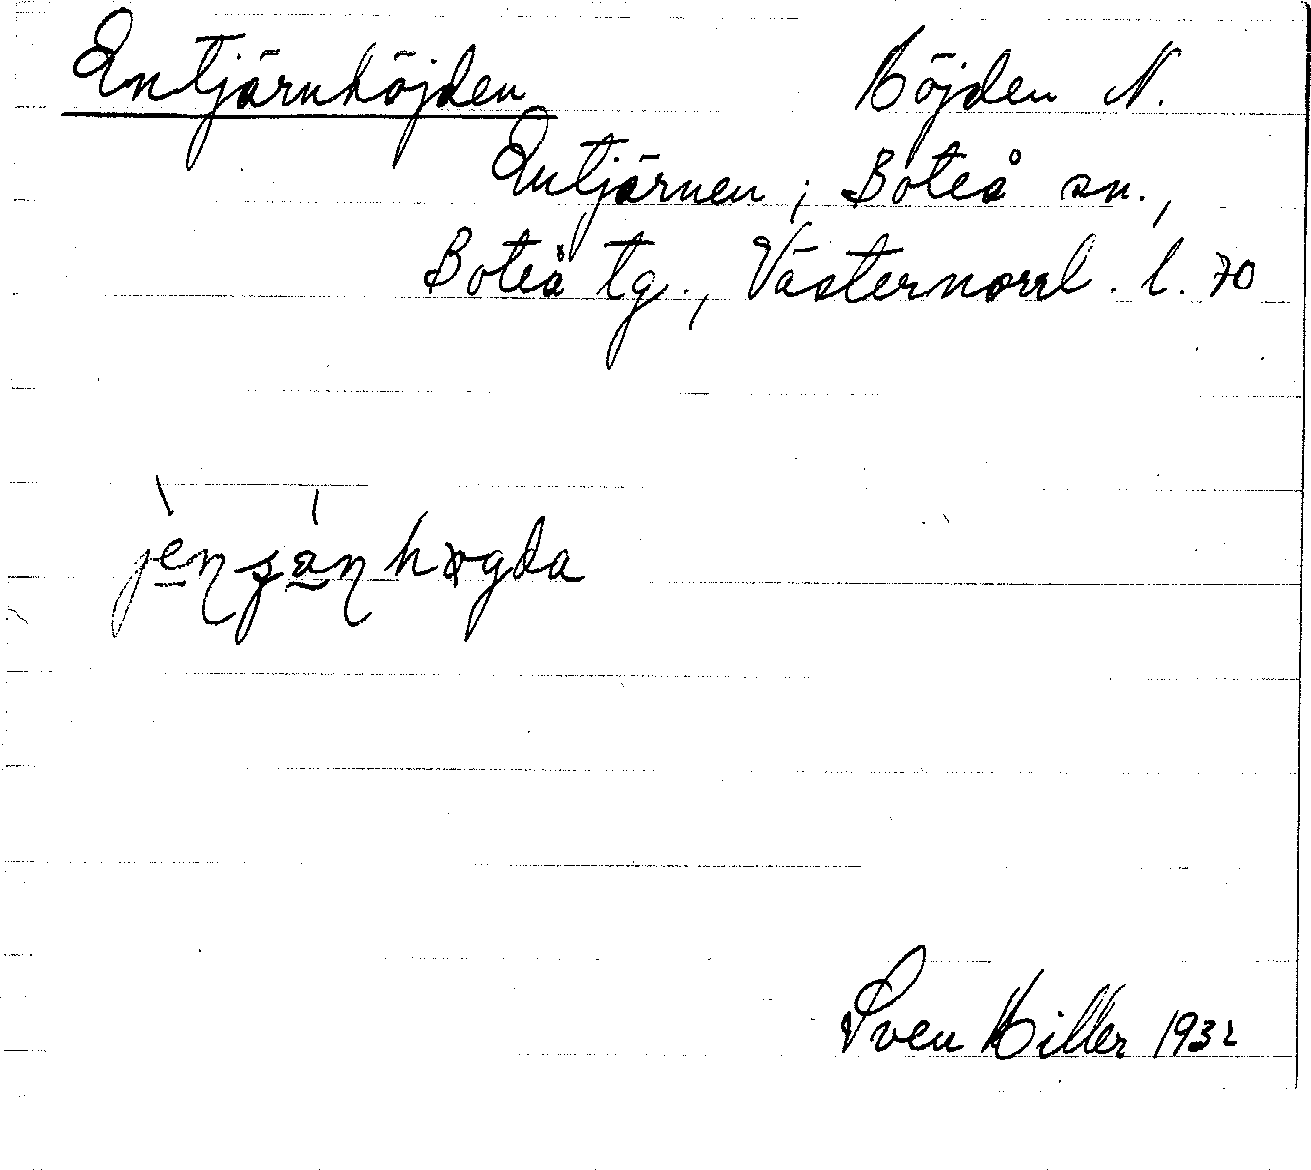 Entjärnhöjden Höjden N.
Entjärnen; Boteå sn.,
Boteå tg., Västernorrl. l. 70
Sven Hiller 1932